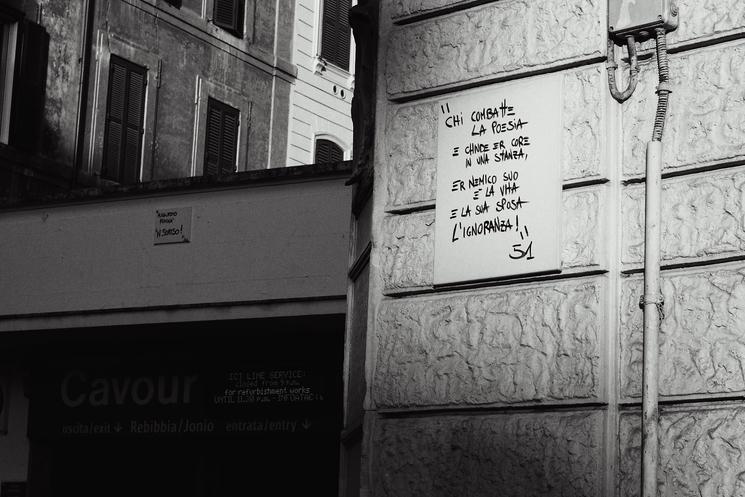 "CHI COMBATTE
LA POESIA
E CHIUDE ER CORE
IN UNA STANZA,
ER NEMICO SUO
E' LA VITA
E LA SUA SPOSA
L'IGNORANZA!"
51
'N SORISO!
Cavour
ICI LINE SERVICE:
closed from 9 p.m.
for refurbishment works
UNTIL 11.30 p.m. - INFOATAC.i
uscita/exit ↓ Rebibbia/Jonio entrata/entry ↓